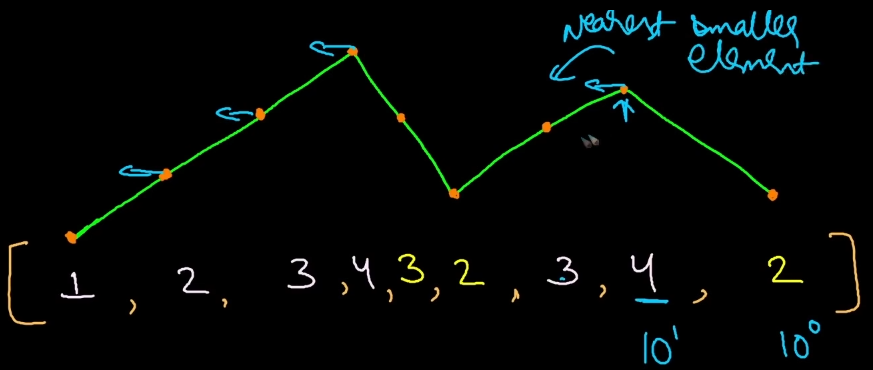 Nearest smaller
element
[1, 2, 3, 4, 3, 2, 3, 4, 2]
10¹ 10⁰